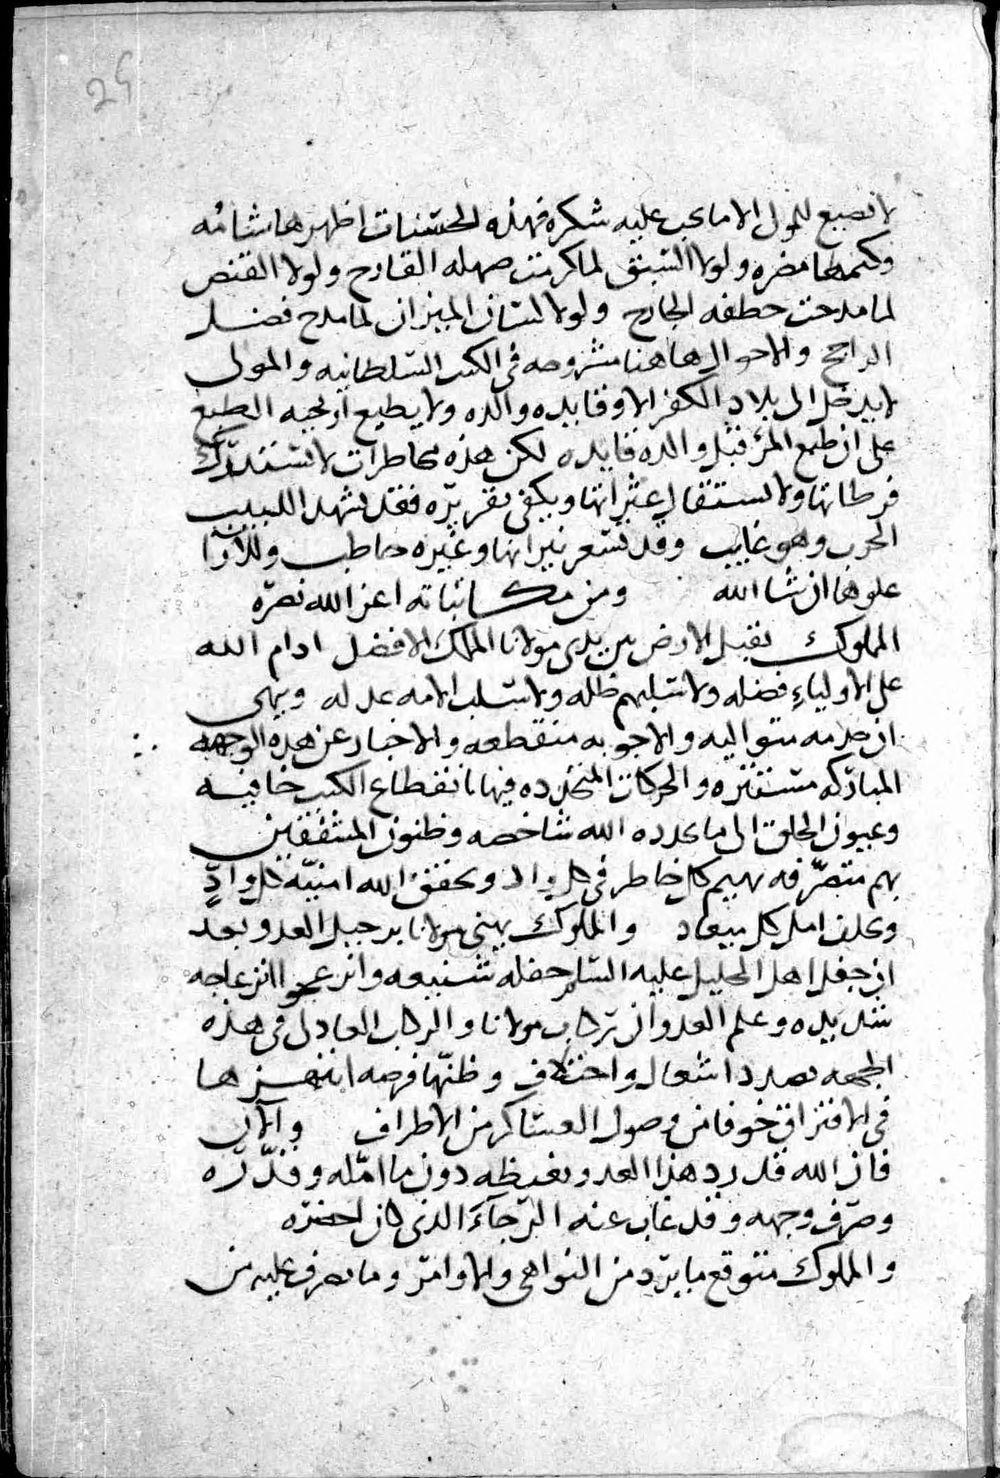 29
لا نصيع للمولى الا ما يجب عليه شكره فهذه الحسنات اظهرها شامه
وكتمها مصره ولولا السبق لما كرمت صهله القارح ولولا القنص
لما مدحت خطفه الجارح ولولا لسان الميزان لما مدح فضل
الراجح والاحوال هاهنا مشروحه في الكتب السلطانيه والمولى
لا يدخل الى بلاد الكفر الا وقايده والده ولا يطيع اريحيه الطبع
على ان طبع المرء قبل والده قايده لكن هذه مخاطرات لا تستدرك
فرطاتها ولا تستقال عثراتها ويكفى تقريره فقد يشهد اللبيب
الحرب وهو غايب وقد تسعر نيرانها وغيره حاطب وللآرا
علوها ان شا الله ومن مكاتباته اعز الله نصره
المملوك يقبل الارض بين يدى مولانا الملك الافضل ادام الله
على الاولياء فضله ولا سلبهم ظله ولا سلب الامه عدله وينهى
ان خدمه متواليه والاجوبه منقطعه والاخبار عن هذه الوجهه
المباركه مستتره والحركات المتجدده فيها بانقطاع الكتب خافيه
وعيون الخلق الى ما يجدده الله شاخصه وظنون المشفقين
بهم متصرفه يهيم كل خاطر فى كل واد ويحقق الله امنيّه كل وادٍّ
ويخلف امل كل معاد والمملوك يهنى مولانا برحيل العدو بعد
ان جفل اهل الخليل عليه السلم جفله شنيعه وانزعجوا انزعاجه
شديده وعلم العدو ان ركاب مولانا والركاب العادلى فى هذه
الجهه بصدد اشغال واختلاف وظنّها فرصه انتهزها
فى الافتراق خوفا من وصول العساكر من الاطراف والآن
فان الله قد رد هذا العدو بغيظه دون ما امّله وقدّره
وصرف وجهه وقد غاب عنه الرجاء الذى كان احضره
والمملوك متوقع ما يرد من النواهى والاوامر وما يصرف عليه من